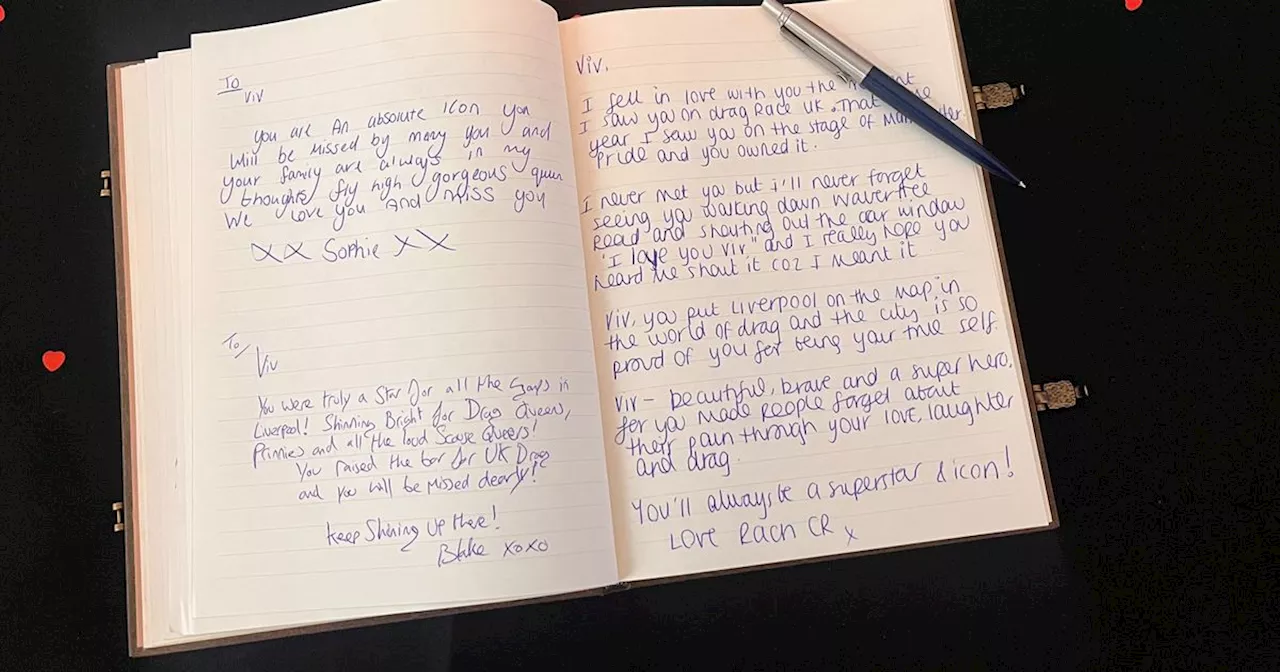 To
Viv
You are An absolute Icon you
Will be Missed by many you and
your family are always in my
thoughts fly high gorgeous queen
We love you And Miss you
XX Sophie XX
To/
Viv
You were truly a Star for all the Gays in
Liverpool! Shinning Bright for Drag Queens,
and all the loud Scouse Queers!
You raised the bar for UK Drag
and you will be missed dearly!
Keep Shining Up there!
Blake xoxo
Viv,
I fell in love with you the
I saw you on drag Race UK. That
year I saw you on the stage of
Pride and you owned it.
I never met you but i'll never forget
seeing you walking down wavertree
Road and shouting out the car window
"I love you Viv" and I really hope you
heard me shout it coz I meant it
Viv, you put Liverpool on the map in
the world of drag and the city is so
proud of you for being your true self.
Viv - beautiful, brave and a super hero,
for you made people forget about
their pain through your love, laughter
and drag.
You'll always be a superstar & icon!
Love Rach CR x